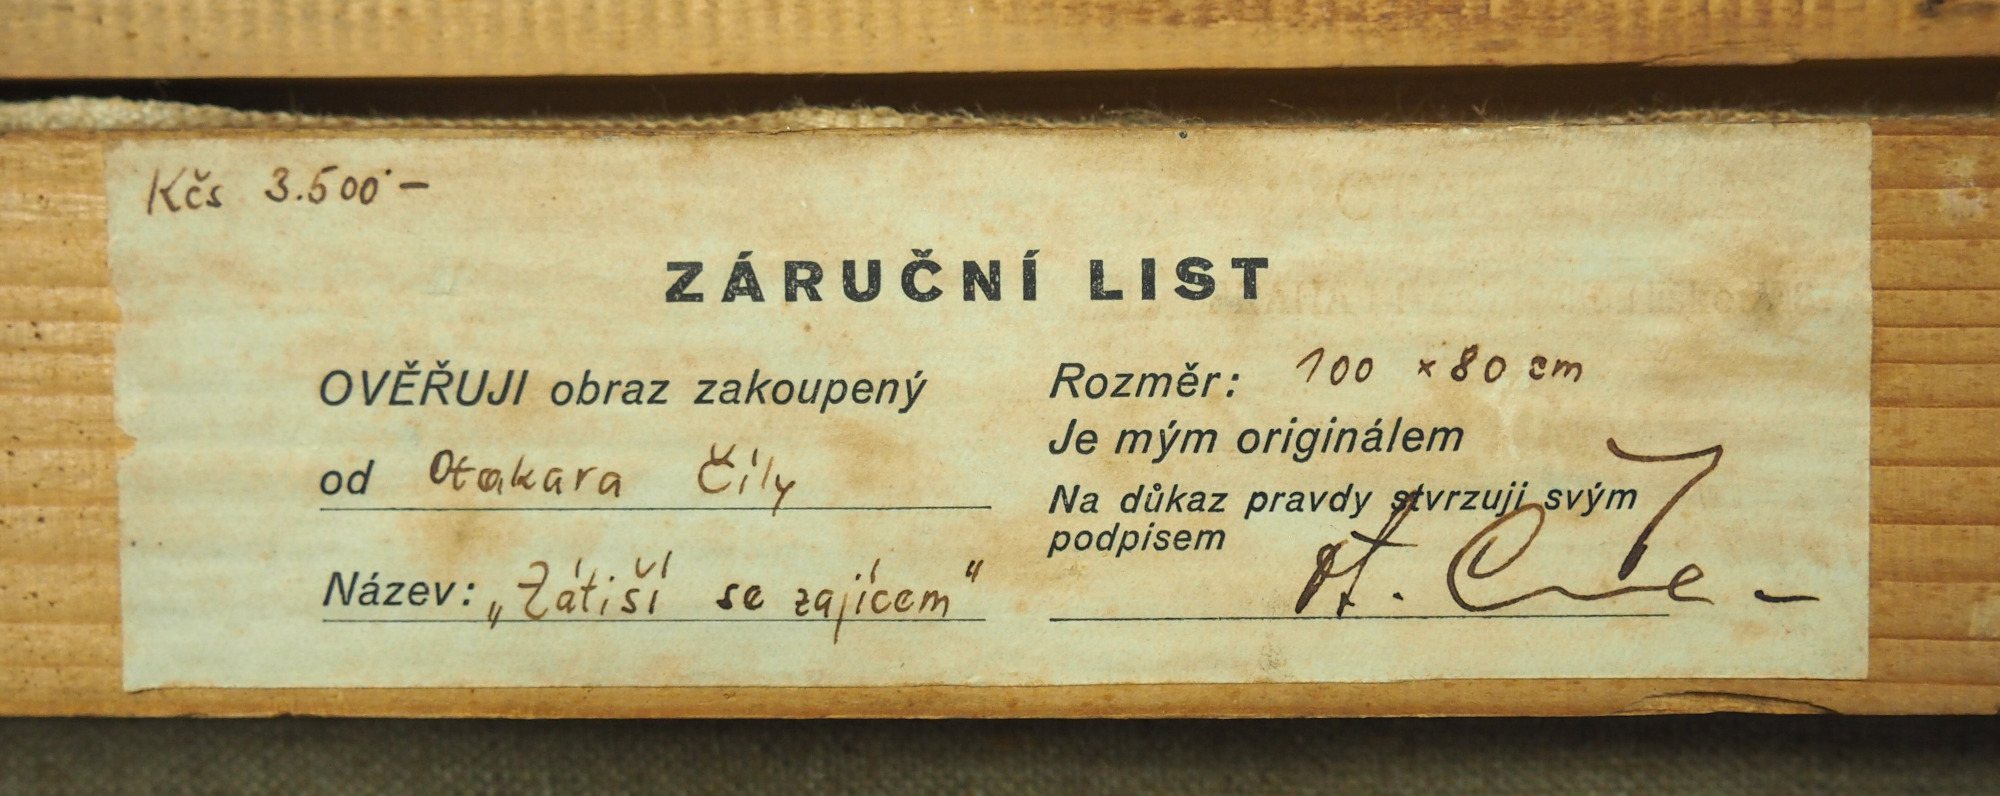 Kčs 3.500·–
ZÁRUČNÍ LIST
OVĚŘUJI obraz zakoupený
od Otakara Číly
Název: „Zátiší se zajícem"
Rozměr: 100 × 80 cm
Je mým originálem
Na důkaz pravdy stvrzuji svým
podpisem